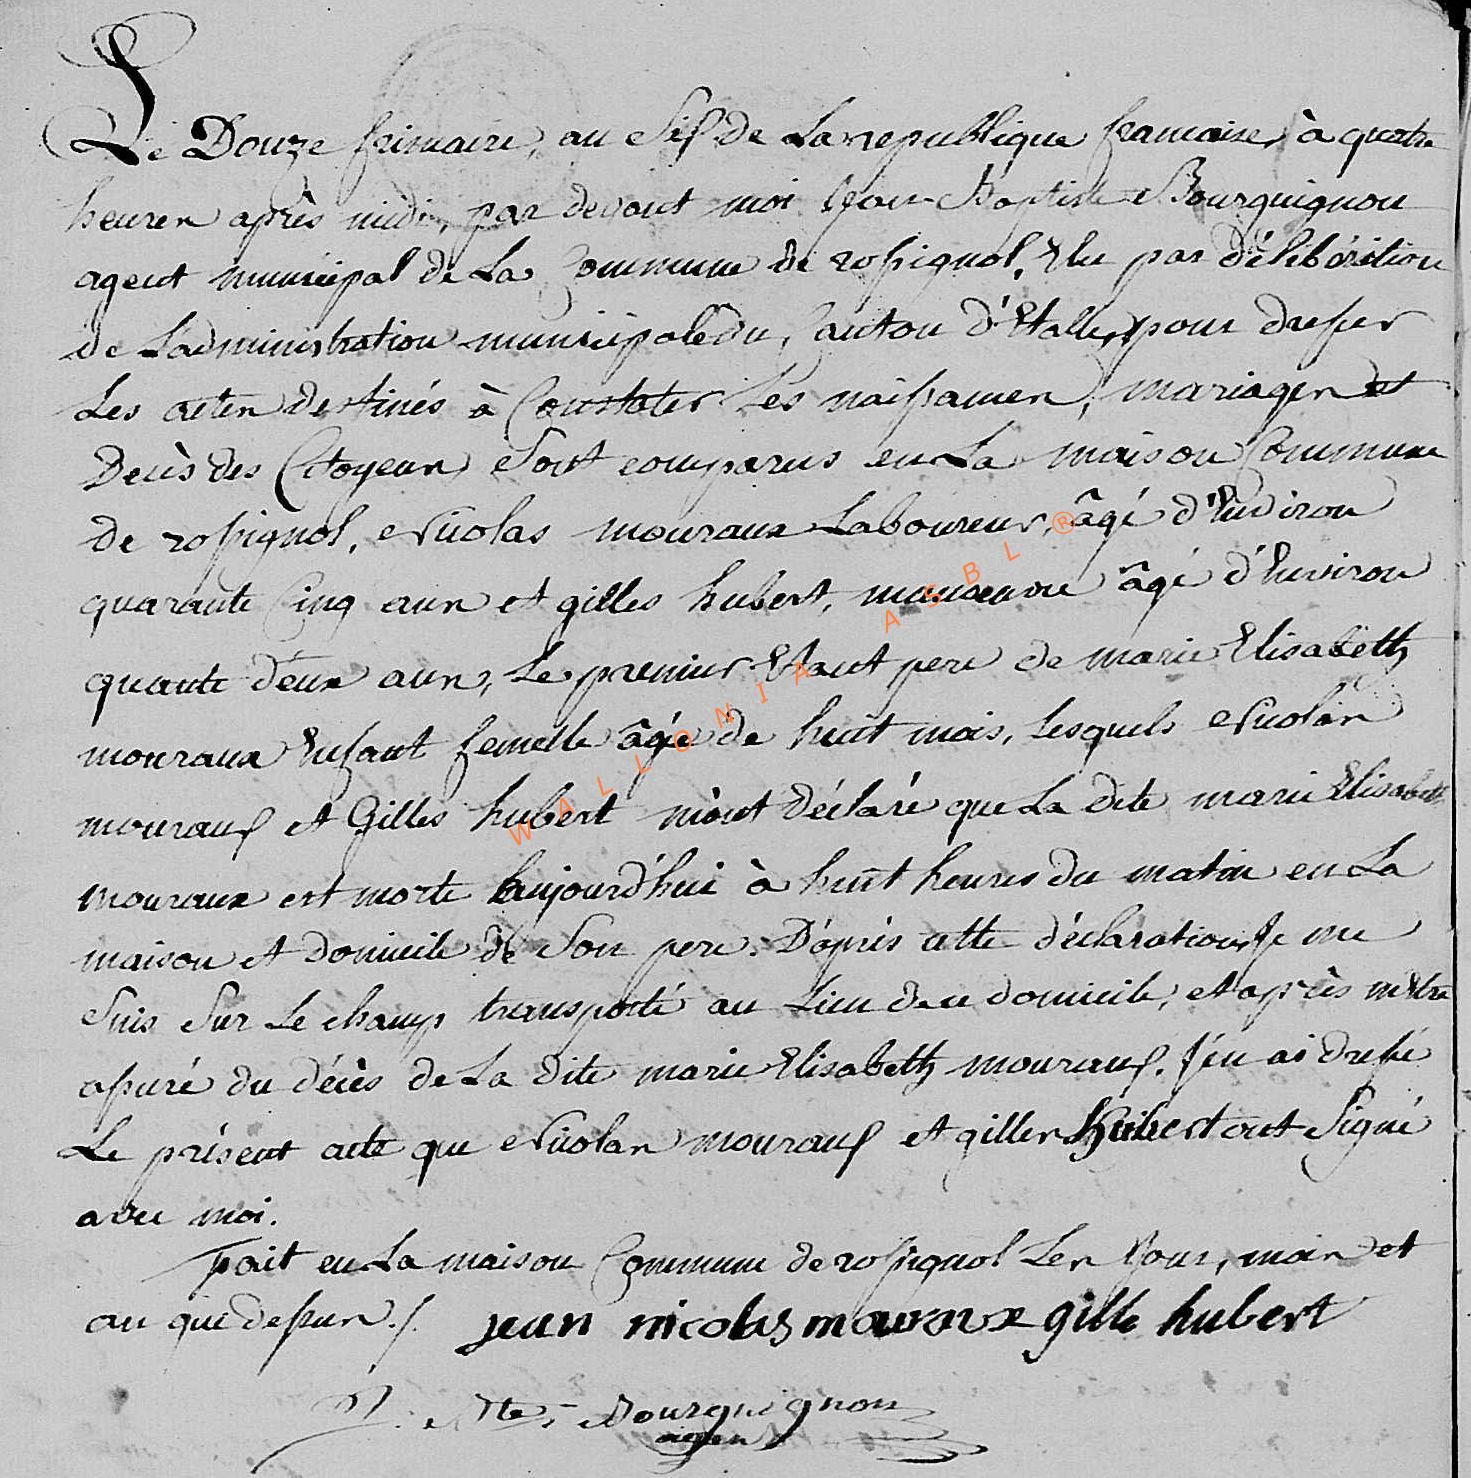 Le Douze frimaire, an Six de La republique francaise, à quatre
heures après midi, par devant moi Jean Baptiste Bourguignon
agent municipal de La Commune de rossignol, Elu par délibération
de L'administration municipale du Canton d'Etalle, pour dresser
Les actes destinés à Constater Les naissances, mariages et
Decès des Citoyens, Sont comparus en La maison Commune
de rossignol, Nicolas mouraux Laboureur, âgé d'Environ
quarante Cinq ans et gilles hubert, manoeuvre âgé d'Environ
quante deux ans, Le premier Etant pere de marie Elisabeth
mouraux Enfant femelle âgée de huit mois, Lesquels Nicolas
mouraux et Gilles hubert m'ont Déclaré que La dite marie Elisabeth
mouraux est morte aujourd'hui à huit heures du matin en La
maison et domicile de Son pere. D'après cette déclaration, Je me
Suis Sur Le champ transporté au Lieu de ce domicile, et après m'etre
assuré du décès de La dite marie Elisabeth mouraux. J'en ai dressé
Le présent acte que Nicolas mouraux et gilles hubert ont Signé
avec moi.
Fait en La maison Commune de rossignol Les Jour, mois et
an que dessus ./.
jean nicolas mouraux gille hubert
J. Bte, Bourguignon
agent
WALLONIA ASBL ®